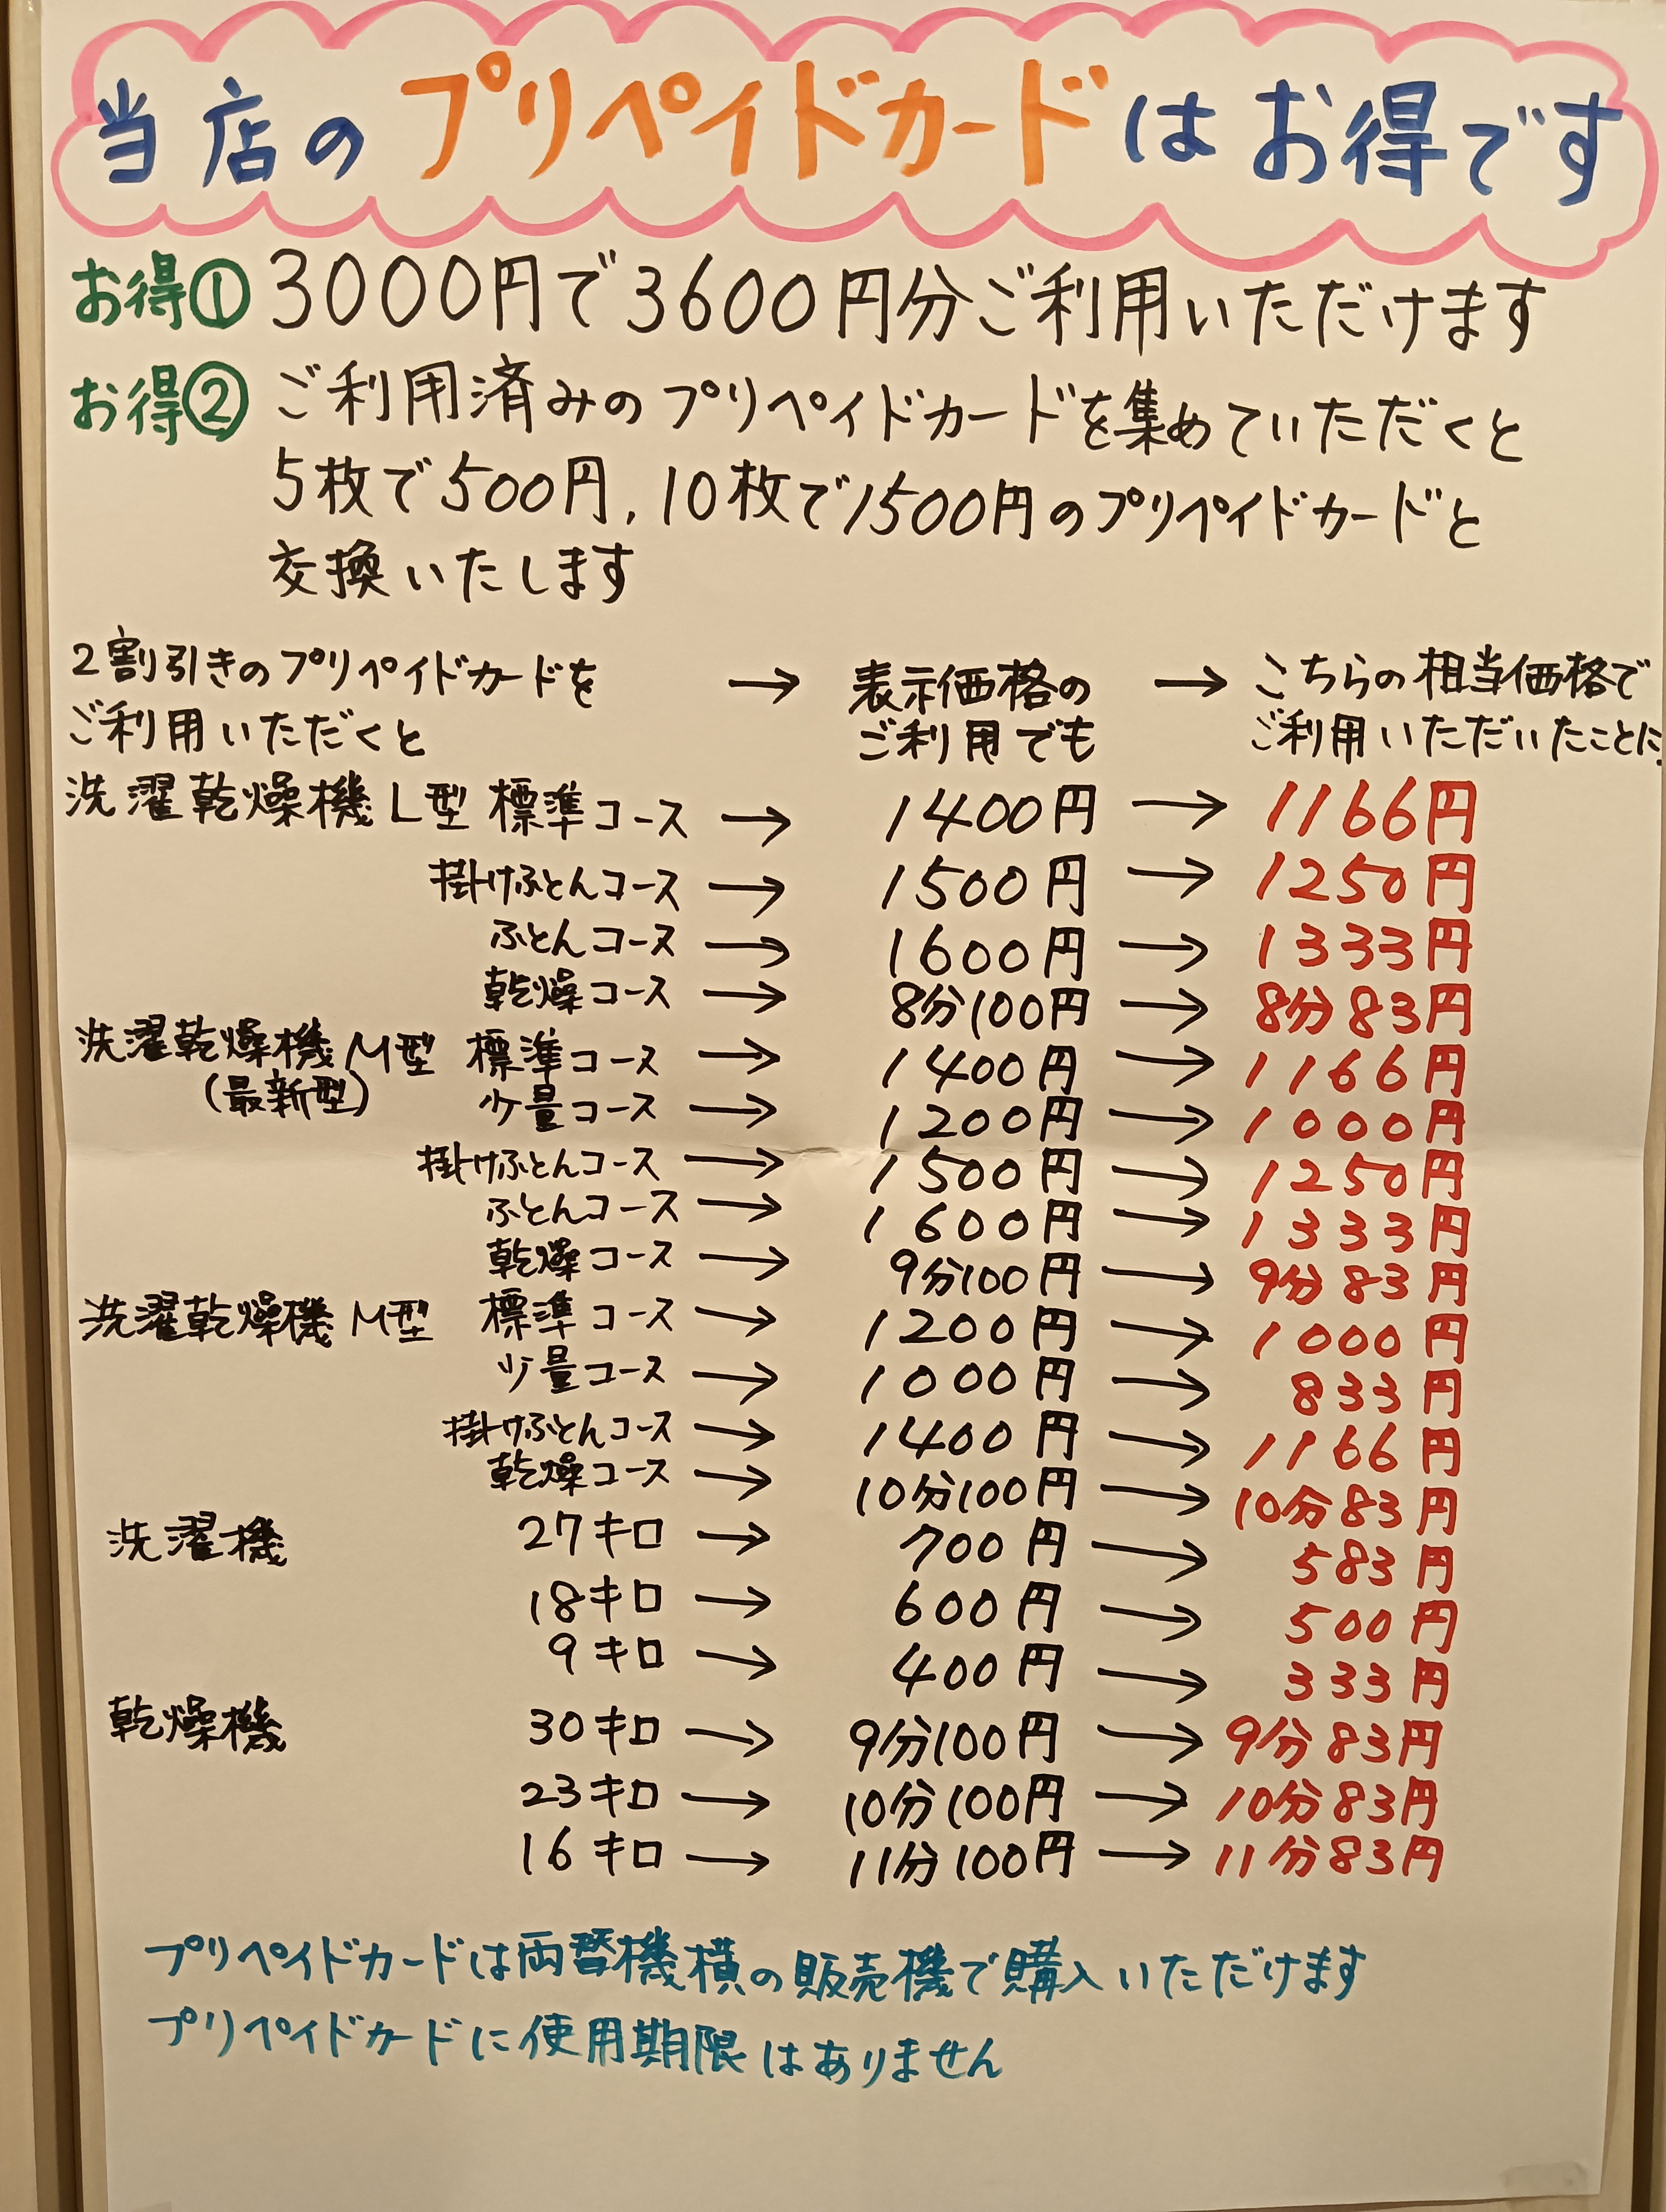 当店のプリペイドカードはお得です
お得① 3000円で3600円分ご利用いただけます
お得② ご利用済みのプリペイドカードを集めていただくと
5枚で500円, 10枚で1500円のプリペイドカードと
交換いたします
2割引きのプリペイドカードを → 表示価格の → こちらの相当価格で
ご利用いただくと ご利用でも ご利用いただいたことに
洗濯乾燥機L型 標準コース → 1400円 → 1166円
掛けふとんコース → 1500円 → 1250円
ふとんコース → 1600円 → 1333円
乾燥コース → 8分100円 → 8分83円
洗濯乾燥機M型 標準コース → 1400円 → 1166円
(最新型) 少量コース → 1200円 → 1000円
掛けふとんコース → 1500円 → 1250円
ふとんコース → 1600円 → 1333円
乾燥コース → 9分100円 → 9分83円
洗濯乾燥機M型 標準コース → 1200円 → 1000円
少量コース → 1000円 → 833円
掛けふとんコース → 1400円 → 1166円
乾燥コース → 10分100円 → 10分83円
洗濯機 27キロ → 700円 → 583円
18キロ → 600円 → 500円
9キロ → 400円 → 333円
乾燥機 30キロ → 9分100円 → 9分83円
23キロ → 10分100円 → 10分83円
16キロ → 11分100円 → 11分83円
プリペイドカードは両替機横の販売機で購入いただけます
プリペイドカードに使用期限はありません